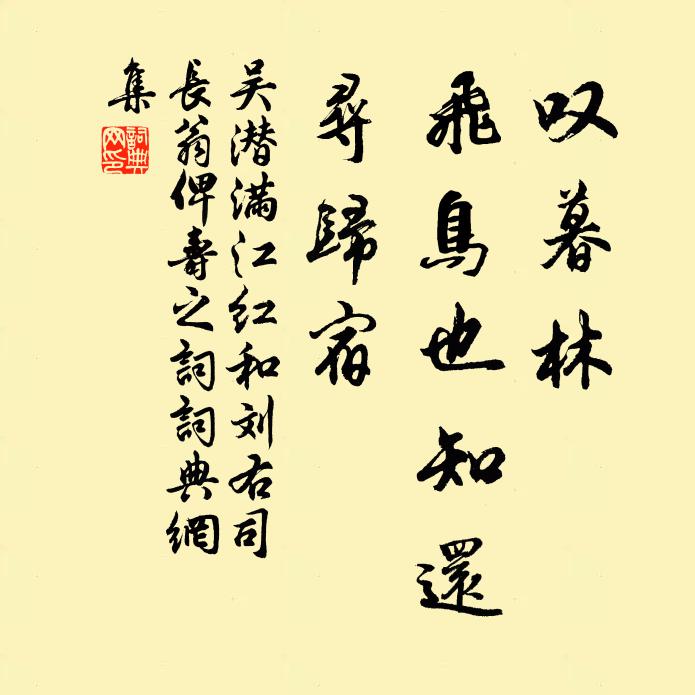 叹暮林
飛鳥也知還
尋歸宿
吴潜满江红和刘右司
長翁俾壽之詞詞典網
集
詞典網印